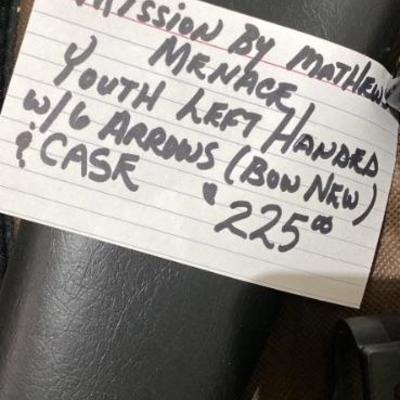 MISSION BY MATHEWS
MENACE
YOUTH LEFT HANDED
W/6 ARROWS (BOW NEW)
& CASE $22500